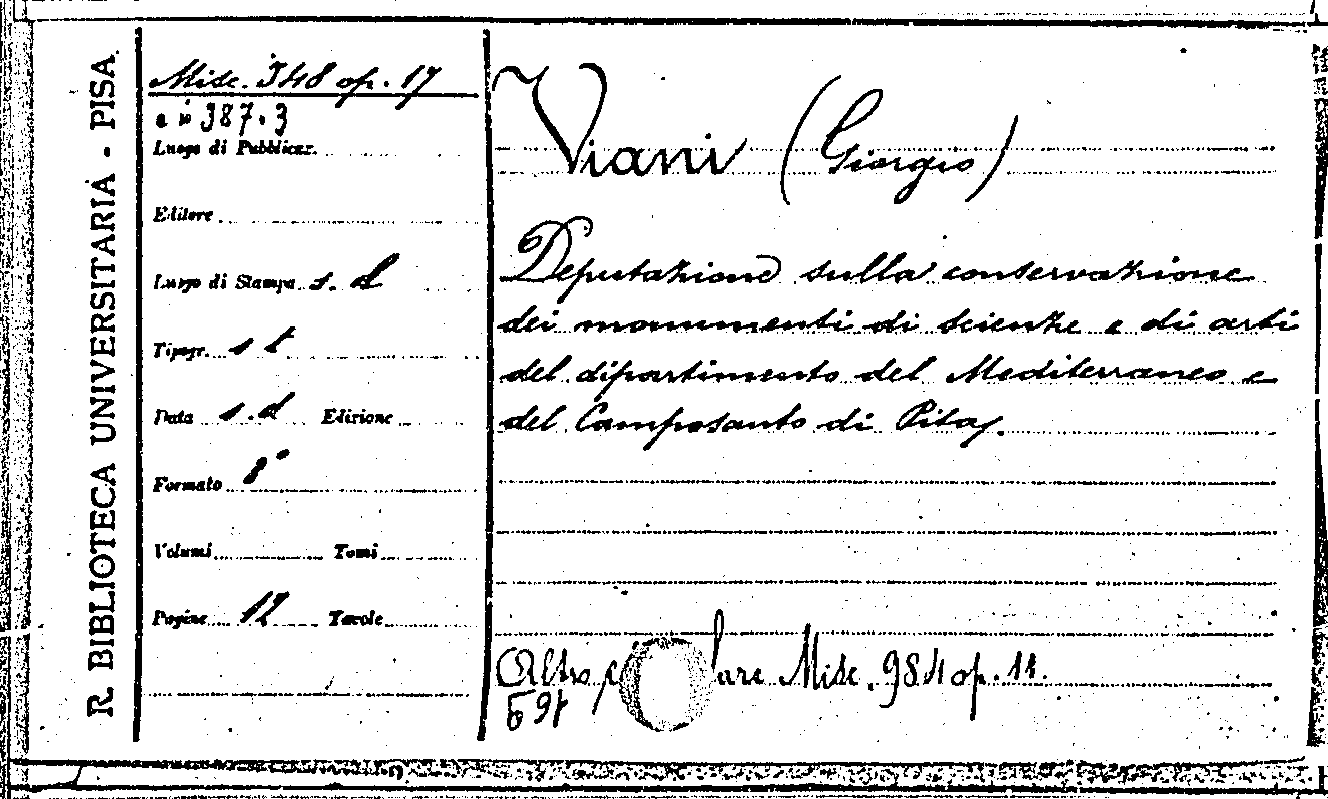 R. BIBLIOTECA UNIVERSITARIA - PISA
Misc. 348 op. 17
387.3
Luogo di Pubblicaz.
Editore
Luogo di Stampa s. d
Tipogr. s t
Data s.d Edizione
Formato 8°
Volumi Tomi
Pagine 12 Tavole
Viani (Giorgio)
Deputazione sulla conservazione
dei monumenti di scienze e di arti
del dipartimento del Mediterraneo e
del Camposanto di Pisa.
Altro lare Misc. 984 op. 11.